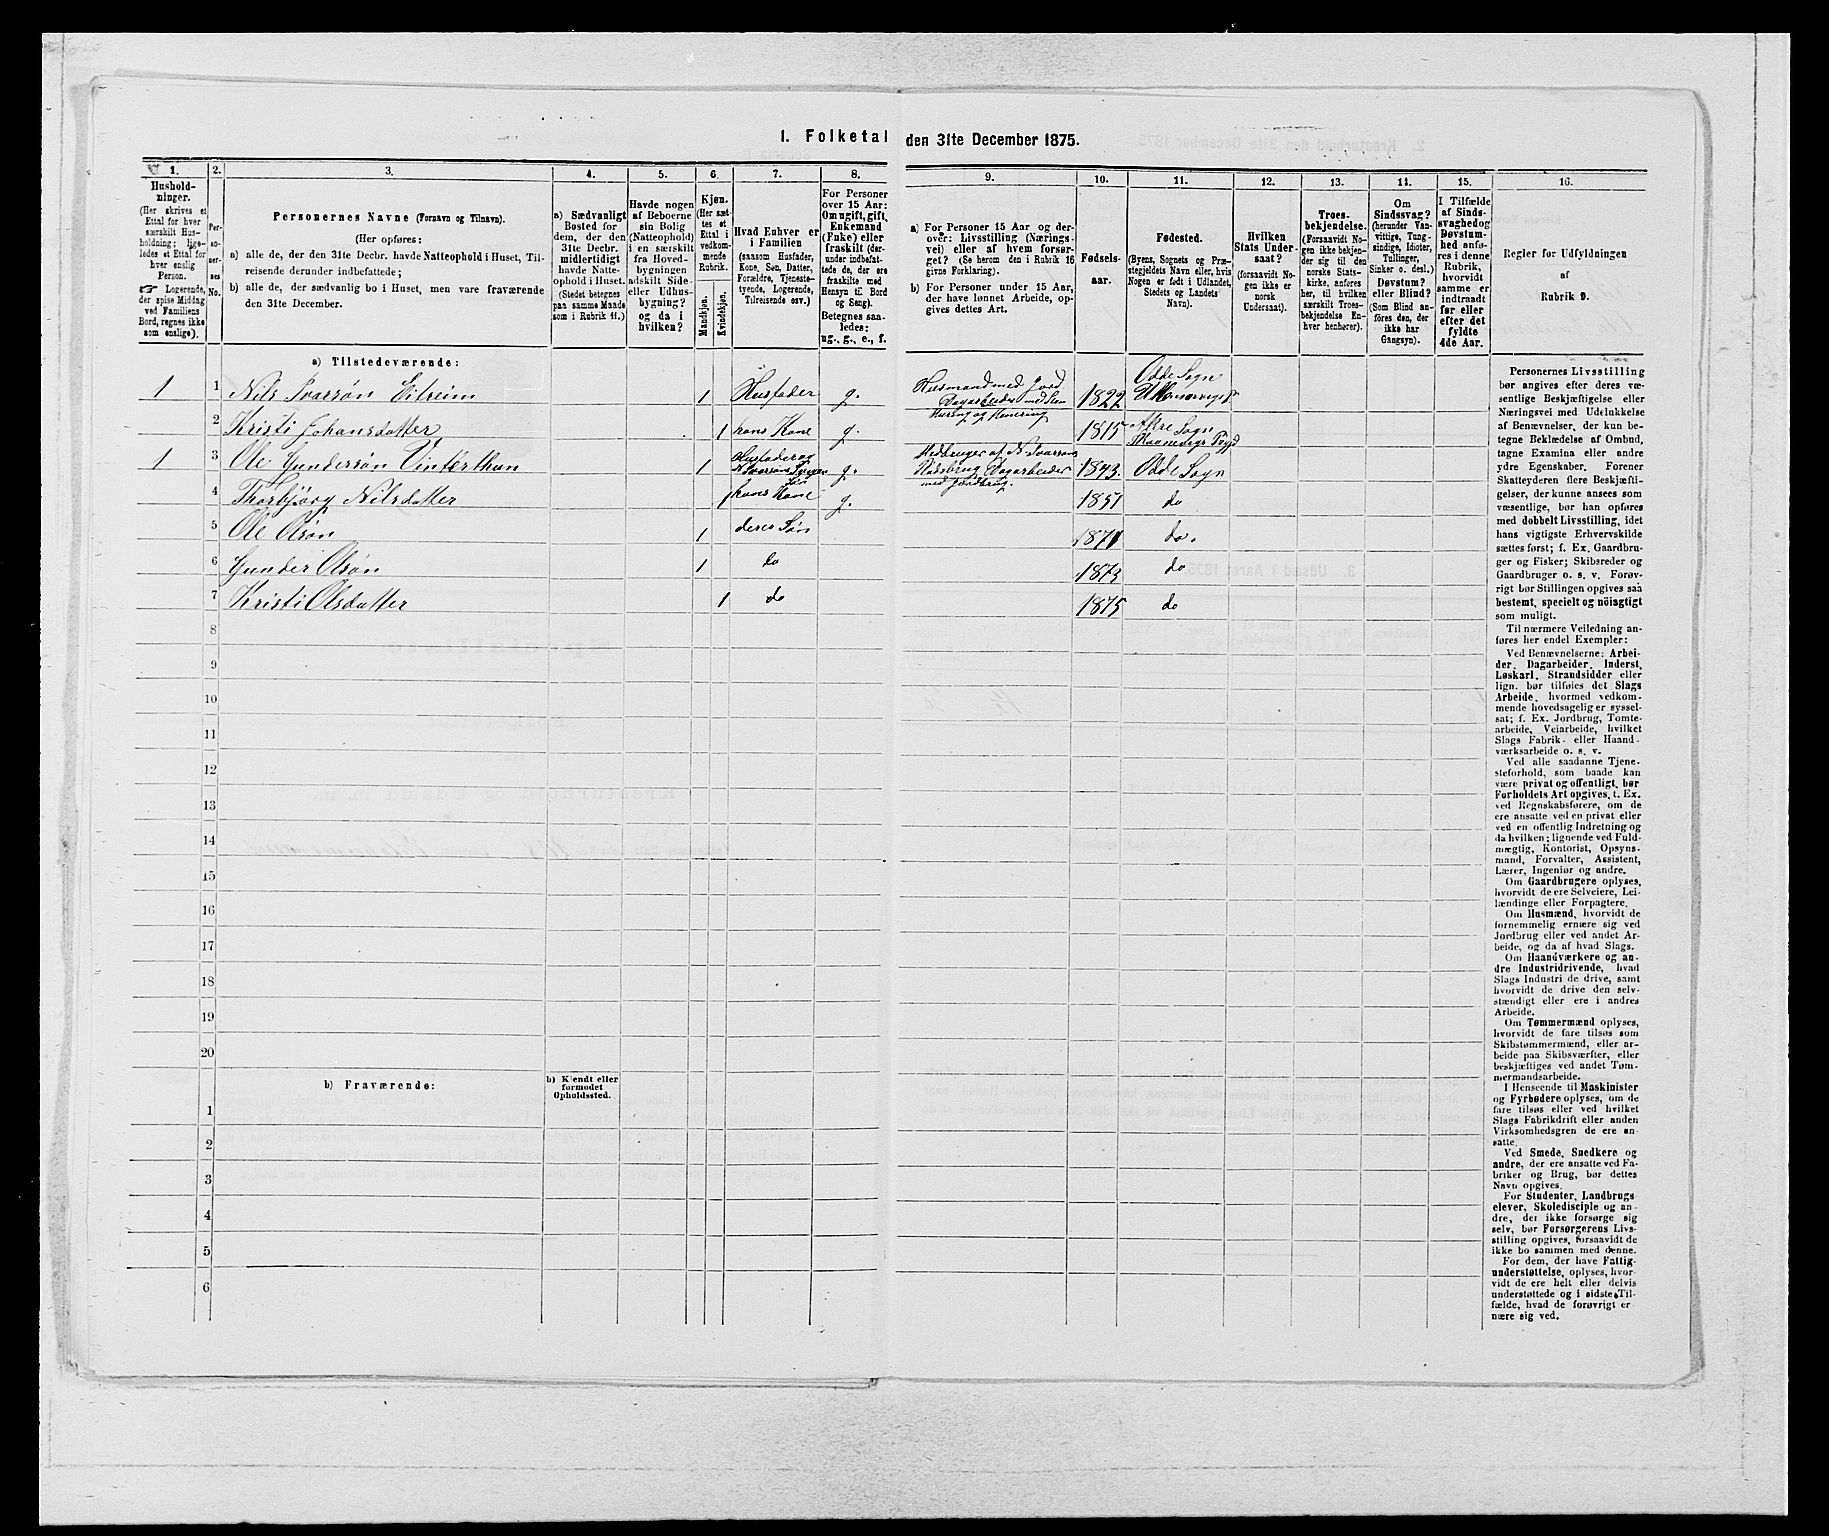 1. Folketal den 31te December 1875.
1.
Hushold-
ninger.
(Her skrives et
Ettal for hver
særskilt Hus-
holdning; lige-
ledes et Ettal for
hver enslig
Person.
☞ Logerende,
der spise Middag
ved Familiens
Bord, regnes ikke
som enslige).
2.
Per-
so-
ner-
nes
No.
3.
Personernes Navne (Fornavn og Tilnavn).
(Her opføres:
a) alle de, der den 31te Decbr. havde Natteophold i Huset, Til-
reisende derunder indbefattede;
b) alle de, der sædvanlig bo i Huset, men vare fraværende
den 31te December.
4.
a) Sædvanligt
Bosted for
dem, der den
31te Decbr.
midlertidigt
havde Natte-
ophold i Huset.
(Stedet betegnes
paa samme Maade
som i Rubrik 11.)
5.
Havde nogen
af Beboerne
sin Bolig
(Natteophold)
i en særskilt
fra Hoved-
bygningen
adskilt Side-
eller Udhus-
bygning?
og da i
hvilken?
6.
Kjøn.
(Her sæt-
tes et
Ettal i
vedkom-
mende
Rubrik.
Mandkjøn.
Kvindekjøn.
7.
Hvad Enhver er
i Familien
(saasom Husfader,
Kone, Søn, Datter,
Forældre, Tjeneste-
tyende, Logerende,
Tilreisende osv.)
8.
For Personer
over 15 Aar:
Om ugift, gift,
Enkemand
(Enke) eller
fraskilt (der-
under indbefat-
tede de, der ere
fraskilte med
Hensyn til Bord
og Seng).
Betegnes saa-
ledes:
ug., g., e., f.
9.
a) For Personer 15 Aar og der-
over: Livsstilling (Nærings-
vei) eller af hvem forsør-
get? (Se herom den i Rubrik 16
givne Forklaring).
b) For Personer under 15 Aar,
der have lønnet Arbeide, op-
gives dettes Art.
10.
Fødsels-
aar.
11.
Fødested.
(Byens, Sognets og Præ-
stegjeldets Navn eller, hvis
Nogen er født i Udlandet,
Stedets og Landets
Navn).
12.
Hvilken
Stats Under-
saat?
(forsaavidt No-
gen ikke er
norsk
Undersaat).
13.
Troes-
bekjendelse.
(Forsaavidt No-
gen ikke bekjen-
der sig til den
norske Stats-
kirke, anføres
her, til hvilken
særskilt Troes-
bekjendelse En-
hver henhører).
14.
Om
Sindssvag?
(herunder Van-
vittige, Tung-
sindige, Idioter,
Tullinger,
Sinker o. desl.)
Døvstum?
eller Blind?
(Som Blind an-
føres den, der
ikke har
Gangsyn).
15.
I Tilfælde
af Sinds-
svaghed og
Døvstum-
hed anfø-
res i denne
Rubrik,
hvorvidt
samme er
indtraadt
før eller
efter det
fyldte
4de Aar.
16.
Regler for Udfyldningen
af
Rubrik 9.
a) Tilstedeværende:
1 1 Nils Ivarsøn Eitreim 1 Husfader g. Husmand med Jord Dagarbeider med 1822 Odde Sogn
2 Kristi Johansdatter 1 hans Kone g. 1815 Sogn
1 3 Ole Gundersøn Vinterthun 1 Husfader og g. af N. Ivarsøns Dagarbeider med Jordbrug. 1843 Odde Sogn
4 Thorbjørg Nilsdatter 1 hans Kone g. 1851 do
5 Ole Olsøn 1 deres Søn 1871 do.
6 Gunder Olsøn 1 do 1873 do
7 Kristi Olsdatter 1 do 1875 do
8
9
10
11
12
13
14
15
16
17
18
19
20
b) Fraværende:
b) Kjendt eller
formodet
Opholdssted.
1
2
3
4
5
6
Personernes Livsstilling
bør angives efter deres væ-
sentlige Beskjæftigelse eller
Næringsvei med Udelukkelse
af Benævnelser, der kun be-
tegne Beklædelse af Ombud,
tagne Examina eller andre
ydre Egenskaber. Forener
Skatteyderen flere Beskjæfti-
gelser, der kunne ansees som
væsentlige, bør han opføres
med dobbelt Livsstilling, idet
hans vigtigste Erhvervskilde
sættes først; f. Ex. Gaardbru-
ger og Fisker; Skibsreder og
Gaardbruger o. s. v. Forøv-
rigt bør Stillingen opgives saa
bestemt, specielt og nöiagtigt
som muligt.
Til nærmere Veiledning an-
føres her endel Exempler:
Ved Benævnelserne: Arbei-
der, Dagarbeider, Inderst,
Løskarl, Strandsidder eller
lign. bør tilføies det Slags
Arbeide, hvormed vedkom-
mende hovedsagelig er syssel-
sat; f. Ex. Jordbrug, Tomte-
arbeide, Veiarbeide, hvilket
Slags Fabrik- eller Haand-
værksarbeide o. s. v.
Ved alle saadanne Tjene-
steforhold, som baade kan
være privat og offentligt, bør
Forholdets Art opgives, t. Ex.
ved Regnskabsførere, om de
ere ansatte ved en privat eller
ved en offentlig Indretning og
da hvilken; lignende ved Fuld-
mægtig, Kontorist, Opsyns-
mand, Forvalter, Assistent,
Lærer, Ingeniør og andre.
Om Gaardbrugere oplyses,
hvorvidt de ere Selveiere, Lei-
lændinge eller Forpagtere.
Om Husmænd, hvorvidt de
fornemmelig ernære sig ved
Jordbrug eller ved andet Ar-
beide, og da af hvad Slags.
Om Haandværkere og an-
dre Industridrivende, hvad
Slags Industri de drive, samt
hvorvidt de drive den selv-
stændigt eller ere i andres
Arbeide.
Om Tømmermænd oplyses,
hvorvidt de fare tilsøs som
Skibstømmermænd, eller ar-
beide paa Skibsværfter, eller
beskjæftiges ved andet Tøm-
mermandsarbeide.
I Henseende til Maskinister
og Fyrbødere oplyses, om de
fare tilsøs eller ved hvilket
Slags Fabrikdrift eller anden
Virksomhedsgren de ere an-
satte.
Ved Smede, Snedkere og
andre, der ere ansatte ved Fa-
briker og Brug, bør dettes
Navn opgives.
For Studenter, Landbrugs-
elever, Skoledisciple og an-
dre, der ikke forsørge sig
selv, bør Forsørgerens Livs-
stilling opgives, forsaavidt de
ikke bo sammen med denne.
For dem, der have Fattig-
understøttelse, oplyses, hvor-
vidt de ere helt eller delvis
understøttede og i sidste Til-
fælde, hvad de forøvrigt er
nære sig ved.